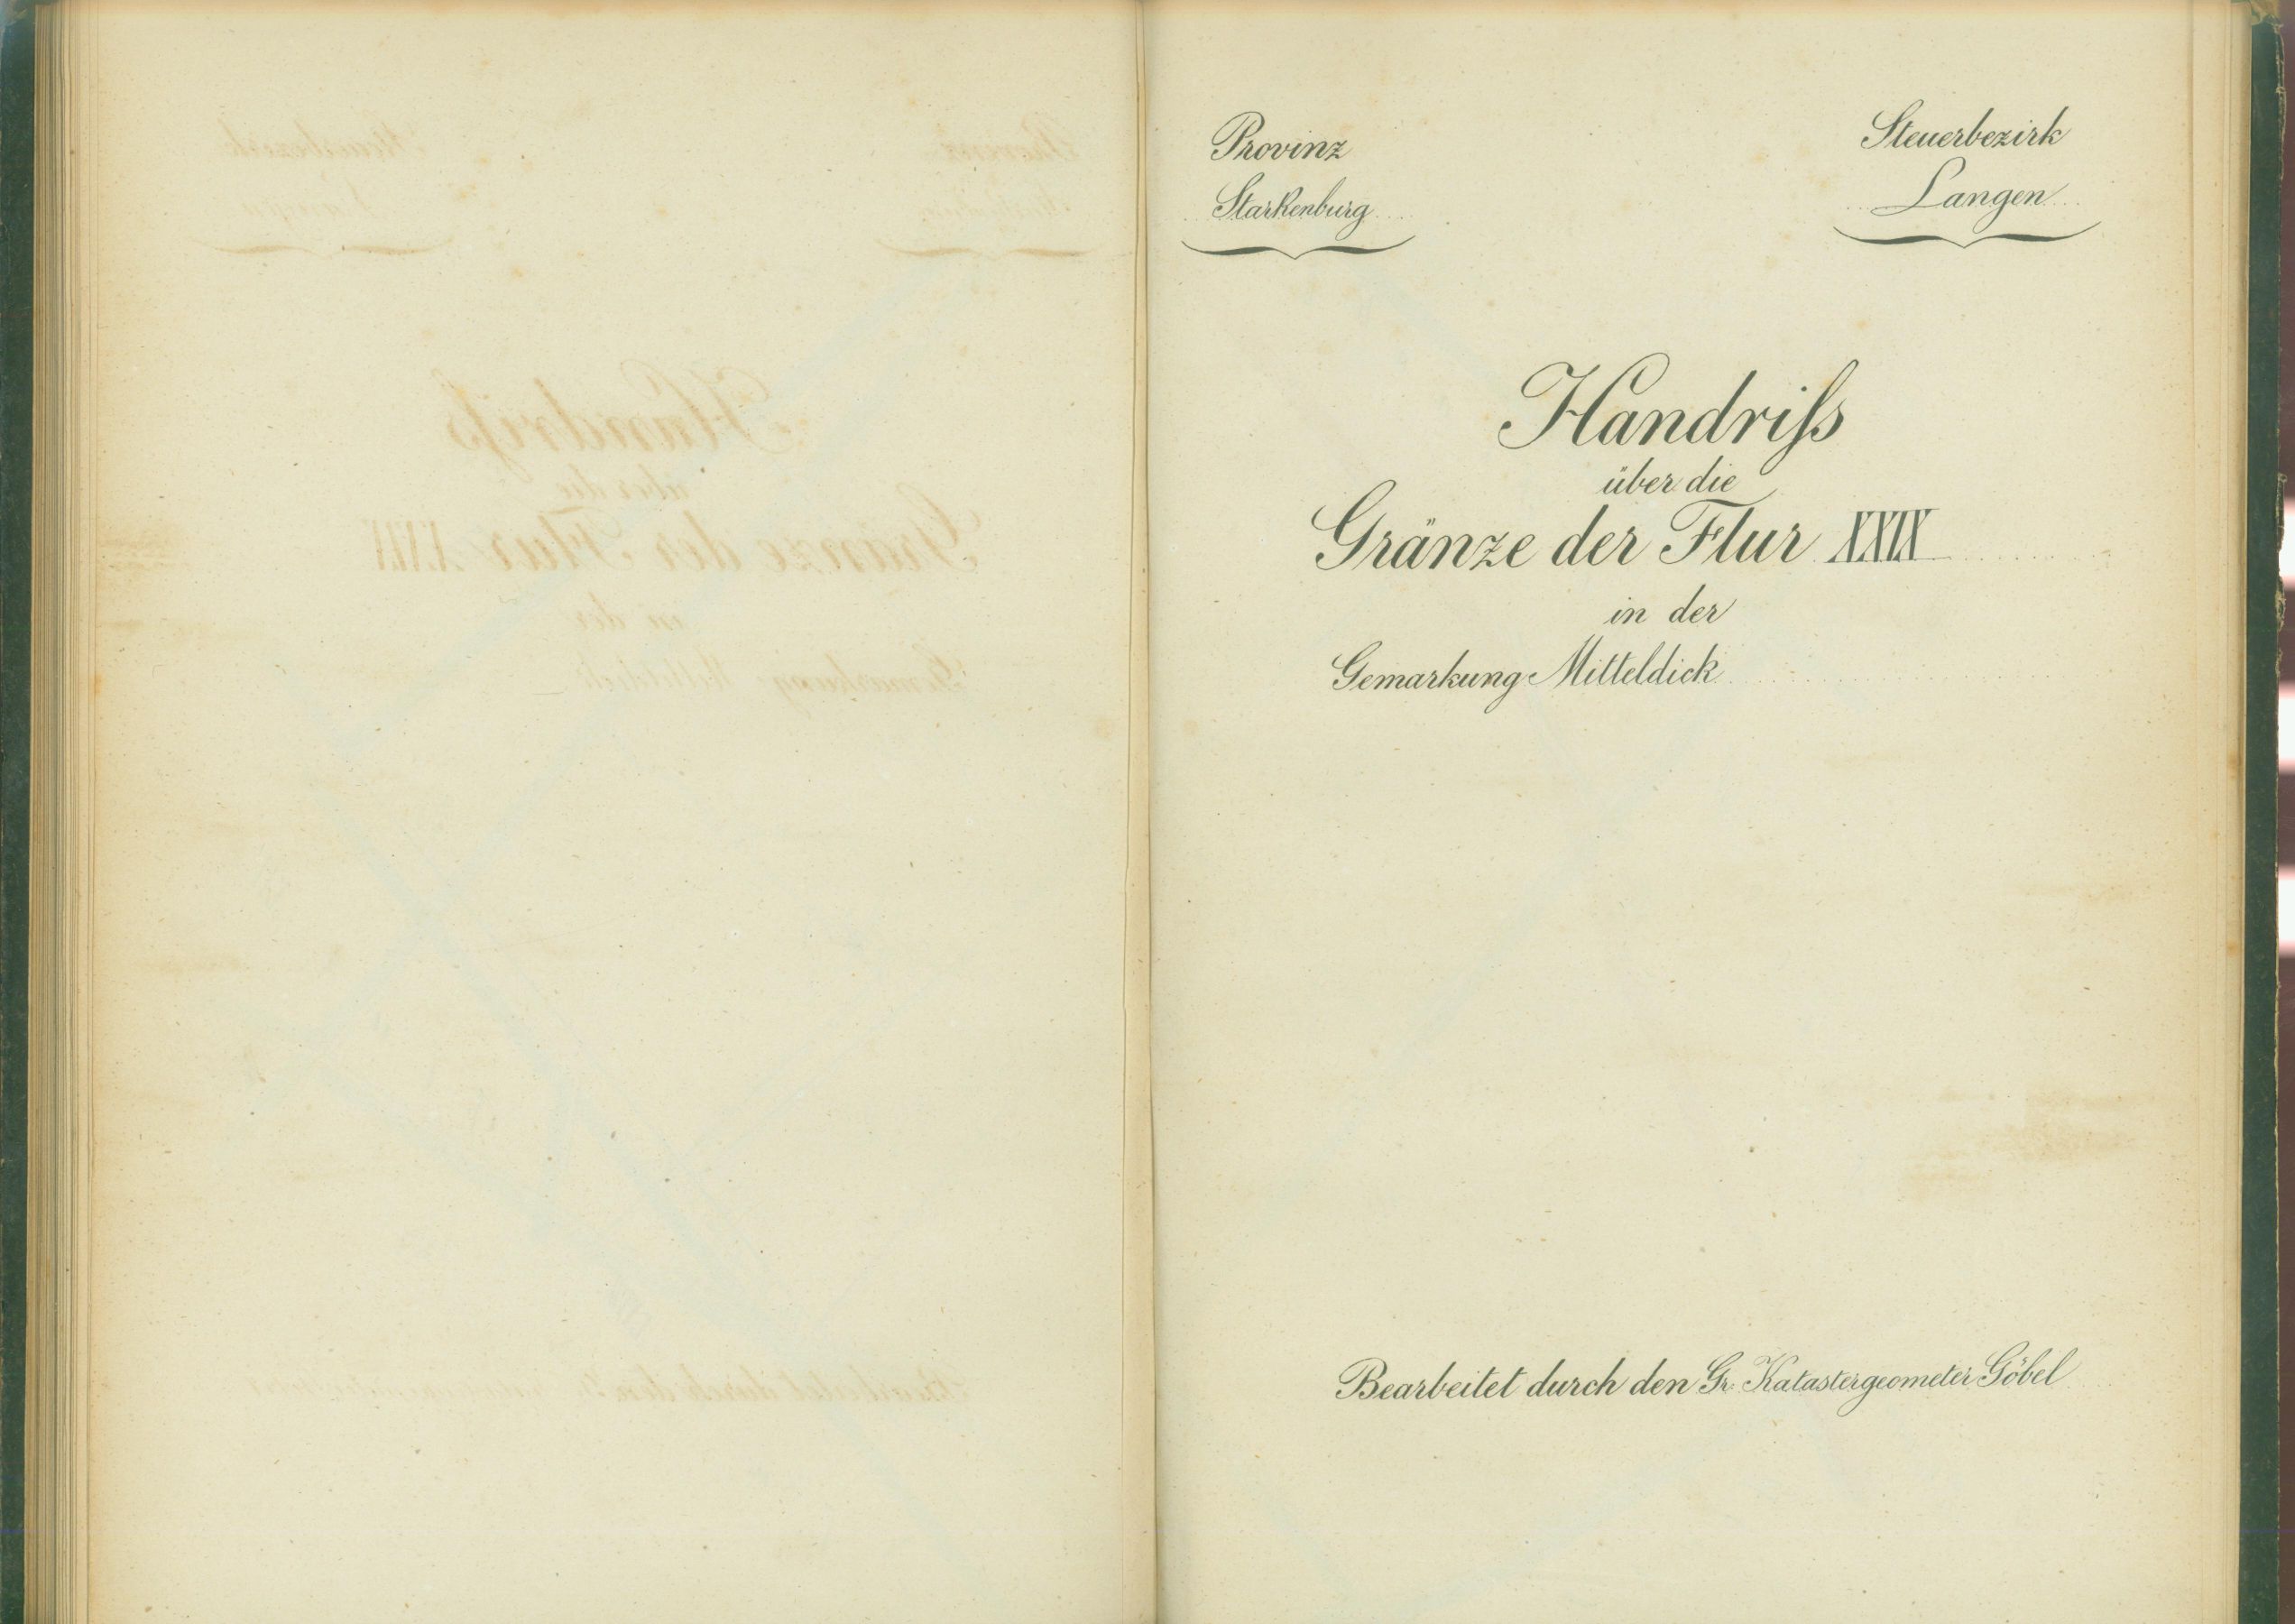 Provinz
Starkenburg
Steuerbezirk
Langen
Handriſs
über die
Gränze der Flur XXIX
in der
Gemarkung Mitteldick
Bearbeitet durch den Gr. Katastergeometer Göbel